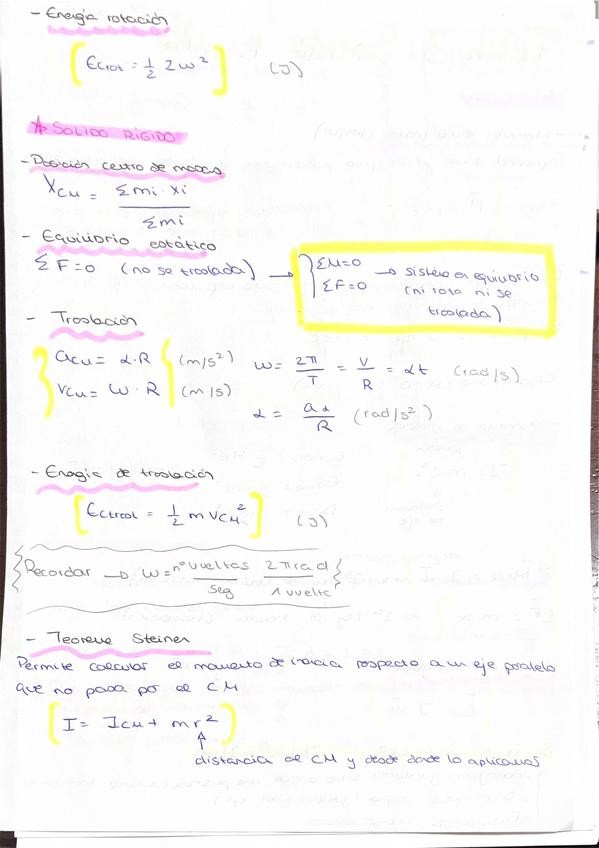 - Energía rotación
Ecrot = 1/2 I ω² (J)
* SOLIDO RÍGIDO
- Posición centro de masas
XCM = Σmi · xi / Σmi
- Equilibrio estático
ΣF=0 (no se traslada) → ΣM=0 ΣF=0 → sistema en equilibrio
(ni rota ni se
traslada)
- Traslación
aCM = α·R (m/s²) ω = 2π/T = V/R = αt (rad/s)
VCM = ω·R (m/s)
α = a/R (rad/s²)
- Energía de traslación
Ectrasl = 1/2 m VCM² (J)
Recordar → ω = nº vueltas/seg 2π rad/1 vuelta
- Teorema Steiner
Permite calcular el momento de inercia respecto a un eje paralelo
que no pasa por el CM
I = ICM + mr²
distancia al CM y desde donde lo aplicamos